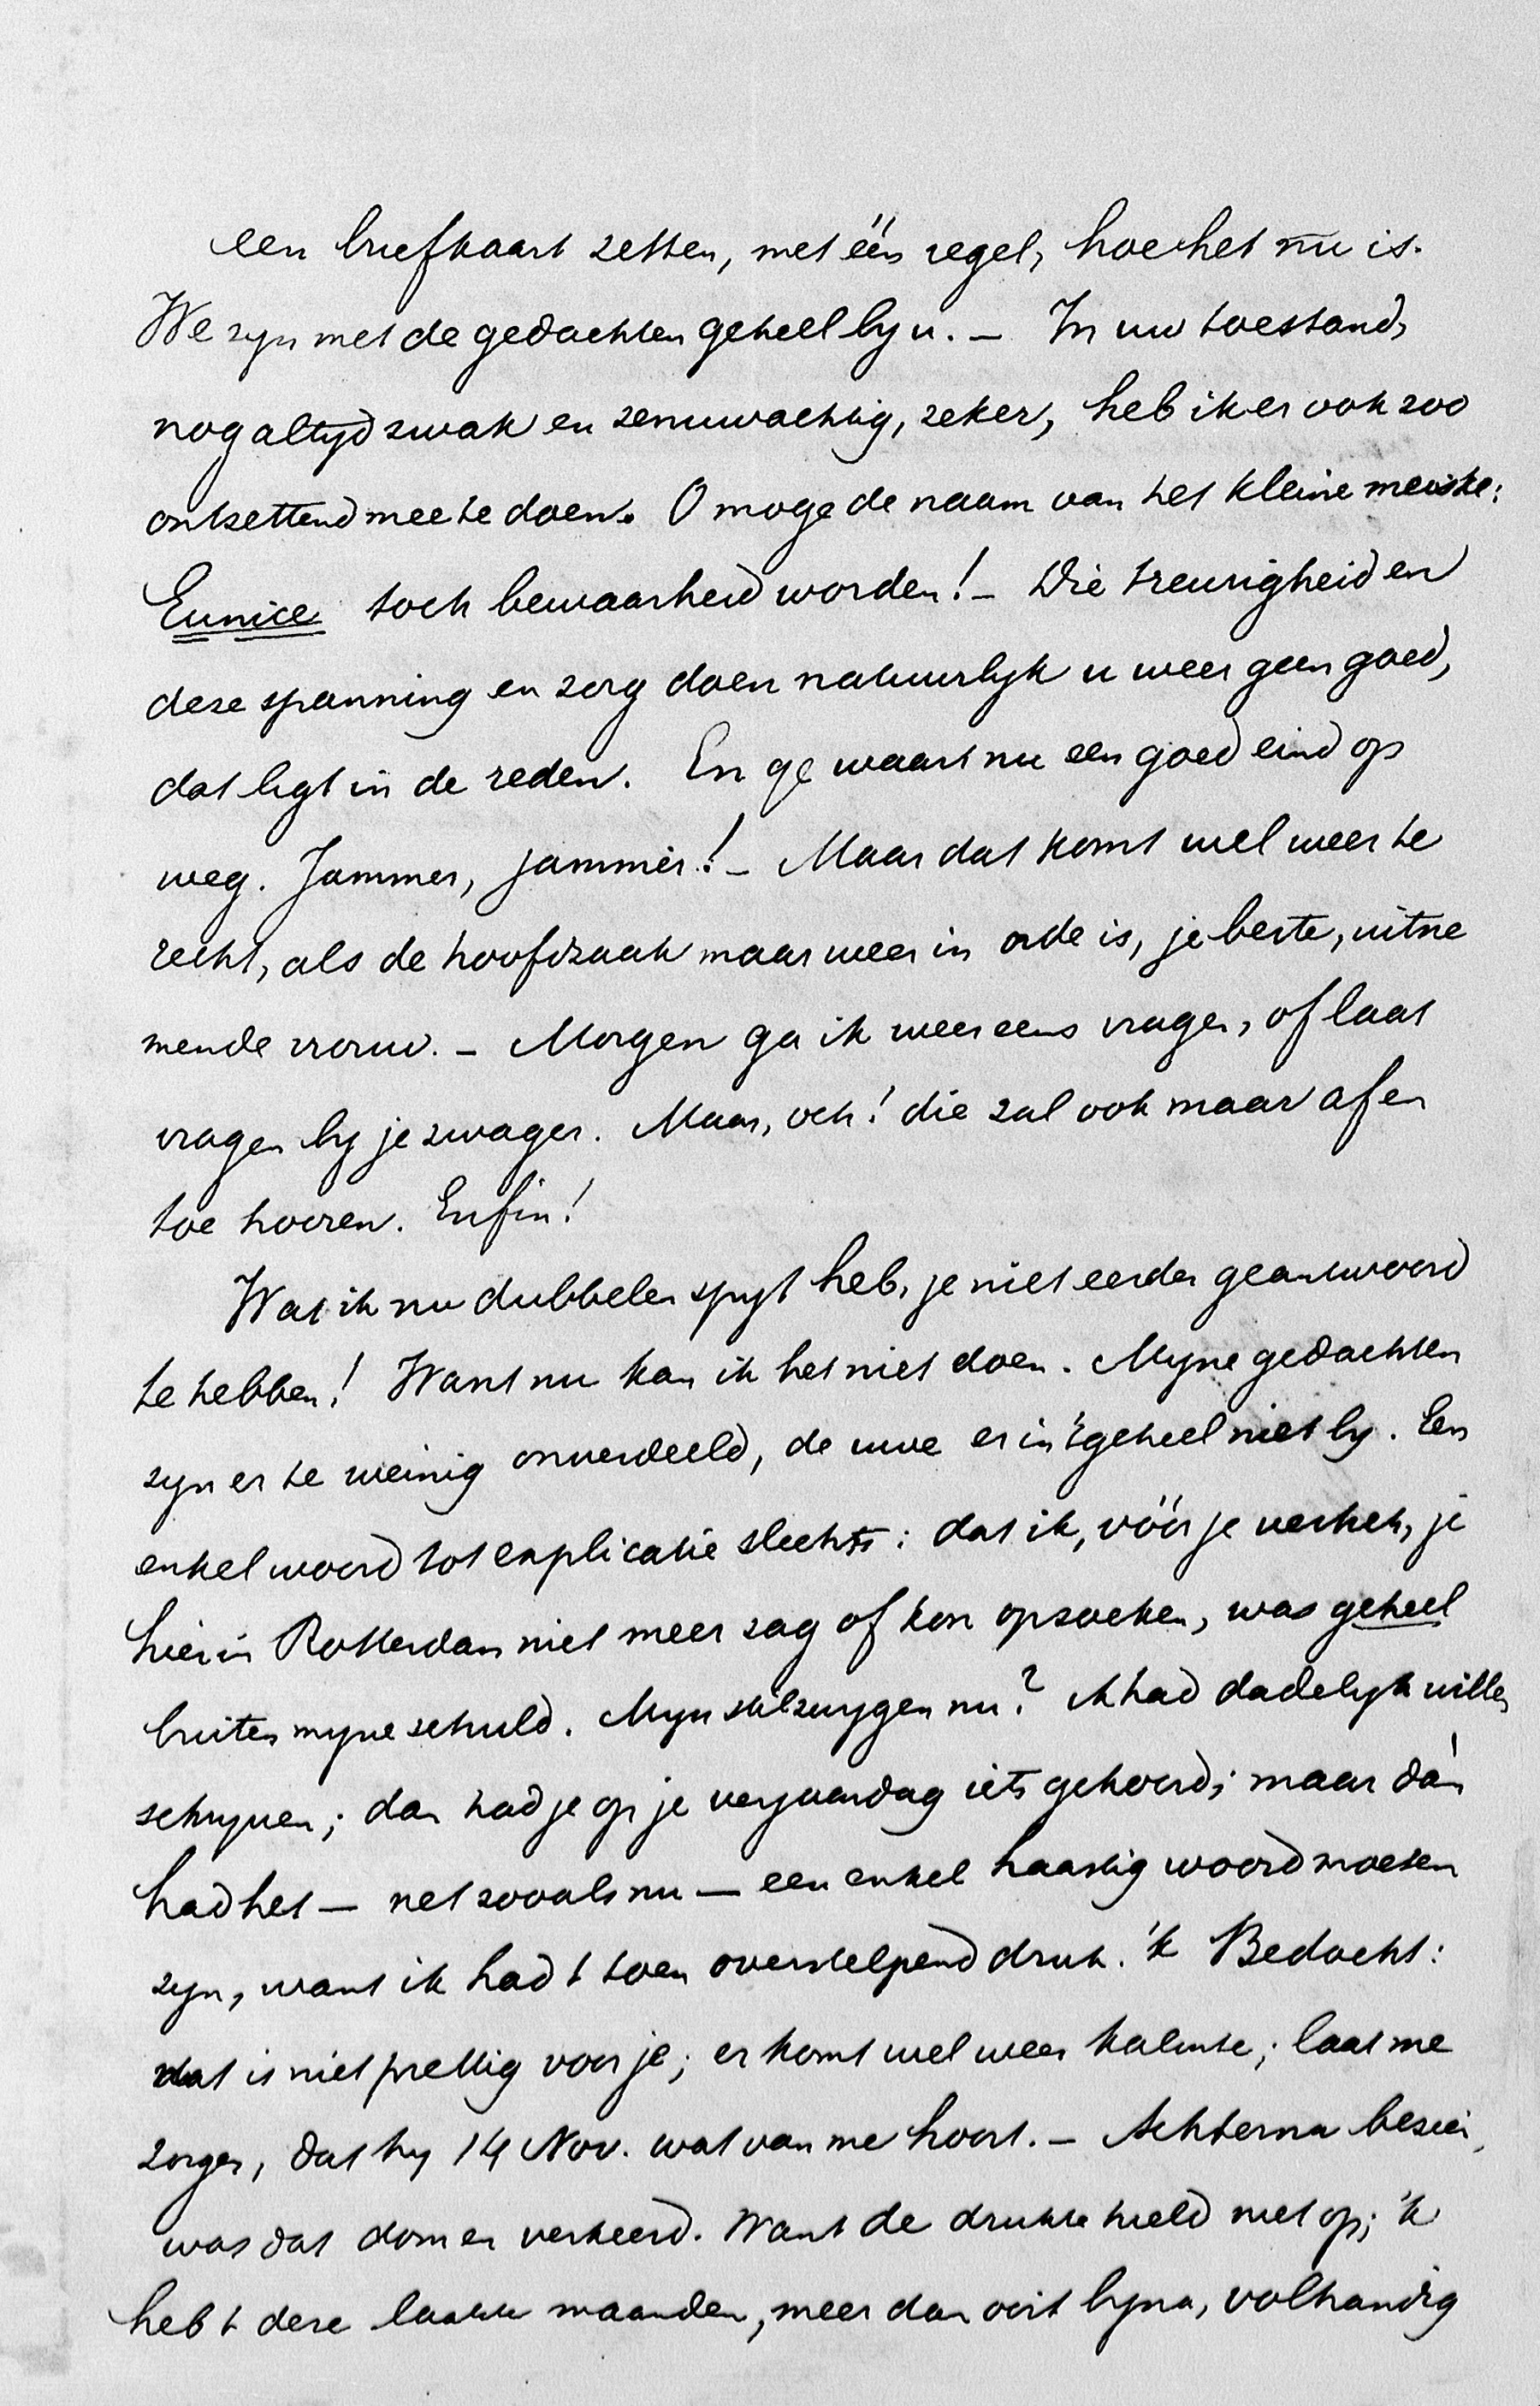 een briefkaart zetten, met één regel, hoe het nu is.
We zyn met de gedachten geheel by u. – In uw toestand,
nog altyd zwak en zenuwachtig, zeker, heb ik er ook zoo
ontzettend mee te doen. O moge de naam van het kleine meiske:
Eunice toch bewaarheid worden! – Die treurigheid en
deze spanning en zorg doen natuurlyk u weer geen goed,
dat ligt in de reden. En ge waart nu een goed eind op
weg. Jammer, jammer! – Maar dat komt wel weer te
recht, als de hoofdzaak maar weer in orde is, je beste, uitne
mende vrouw. – Morgen ga ik weer eens vragen, of laat
vragen by je zwager. Maar, och! die zal ook maar af en
toe hooren. Enfin!
Wat ik nu dubbele spyt heb, je niet eerder geantwoord
te hebben! Want nu kan ik het niet doen. Myne gedachten
zyn er te weinig onverdeeld, de uwe er in 't geheel niet by. Een
enkel woord tot explicatie slechts: dat ik, vóór je vertrek, je
hier in Rotterdam niet meer zag of kon opzoeken, was geheel
buiten myne schuld. Myn stilzwygen nu? Ik had dadelyk willen
schryven; dan had je op je verjaardag iets gehoord; maar dán
had het – net zooals nu – een enkel haastig woord moeten
zyn, want ik had t toen overstelpend druk. 'k Bedacht:
dat is niet prettig voor je; er komt wel weer kalmte; laat me
zorgen, dat hy 14 Nov. wat van me hoort. – Achterna bezien,
was dat dom en verkeerd. Want de drukte hield niet op; 'k
heb t deze laatste maanden, meer dan ooit byna, volhandig